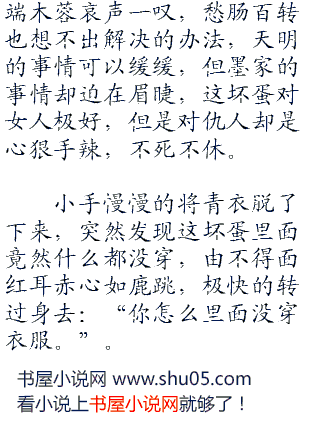 端木蓉哀声一叹，愁肠百转
也想不出解决的办法，天明
的事情可以缓缓，但墨家的
事情却迫在眉睫，这坏蛋对
女人极好，但是对仇人却是
心狠手辣，不死不休。
小手慢慢的将青衣脱了
下来，突然发现这坏蛋里面
竟然什么都没穿，由不得面
红耳赤心如鹿跳，极快的转
过身去：“你怎么里面没穿
衣服。”。
书屋小说网 www.shu05.com
看小说上书屋小说网就够了！